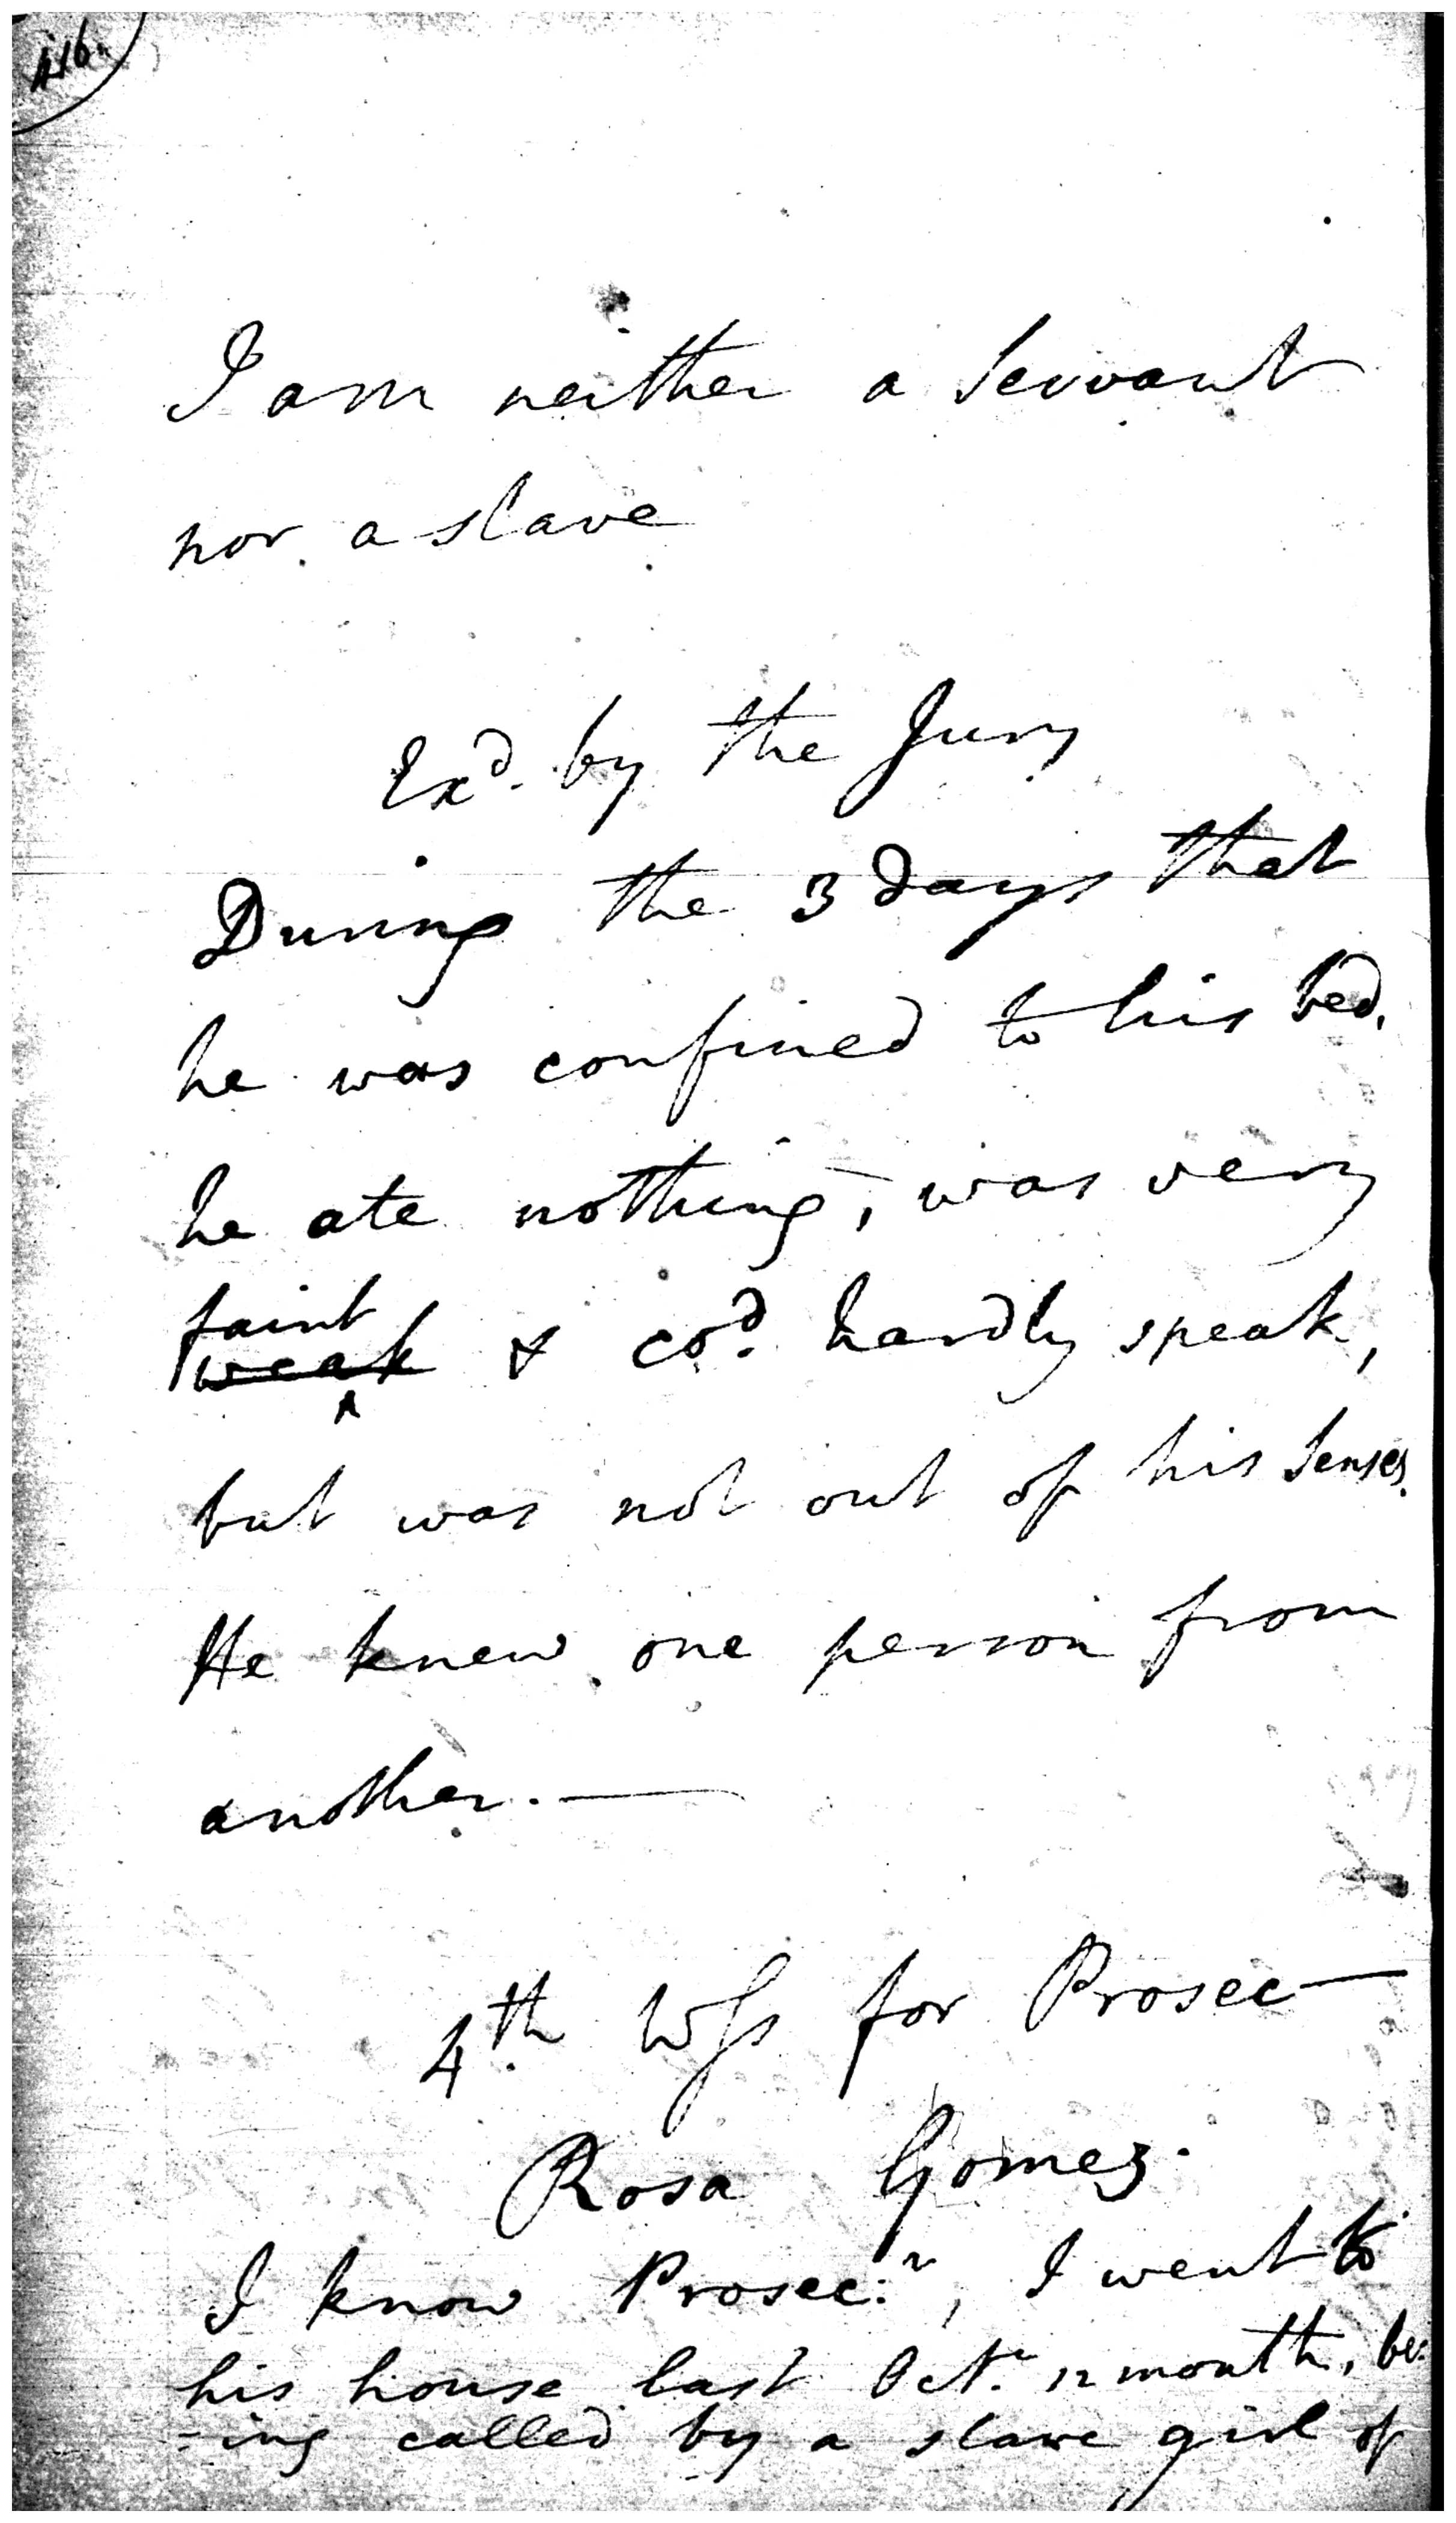 416
I am neither a Servant
nor a slave
Exd. by the Jury
During the 3 days that
he was confined to his bed,
he ate nothing, was very
faint
weak & cod. hardly speak,
but was not out of his Senses.
He knew one person from
another. —
4th Wss for Prosec—
Rosa Gomez.
I know Prosec:r, I went to
his house last Octr. 12 month, be-
-ing called by a slave girl of